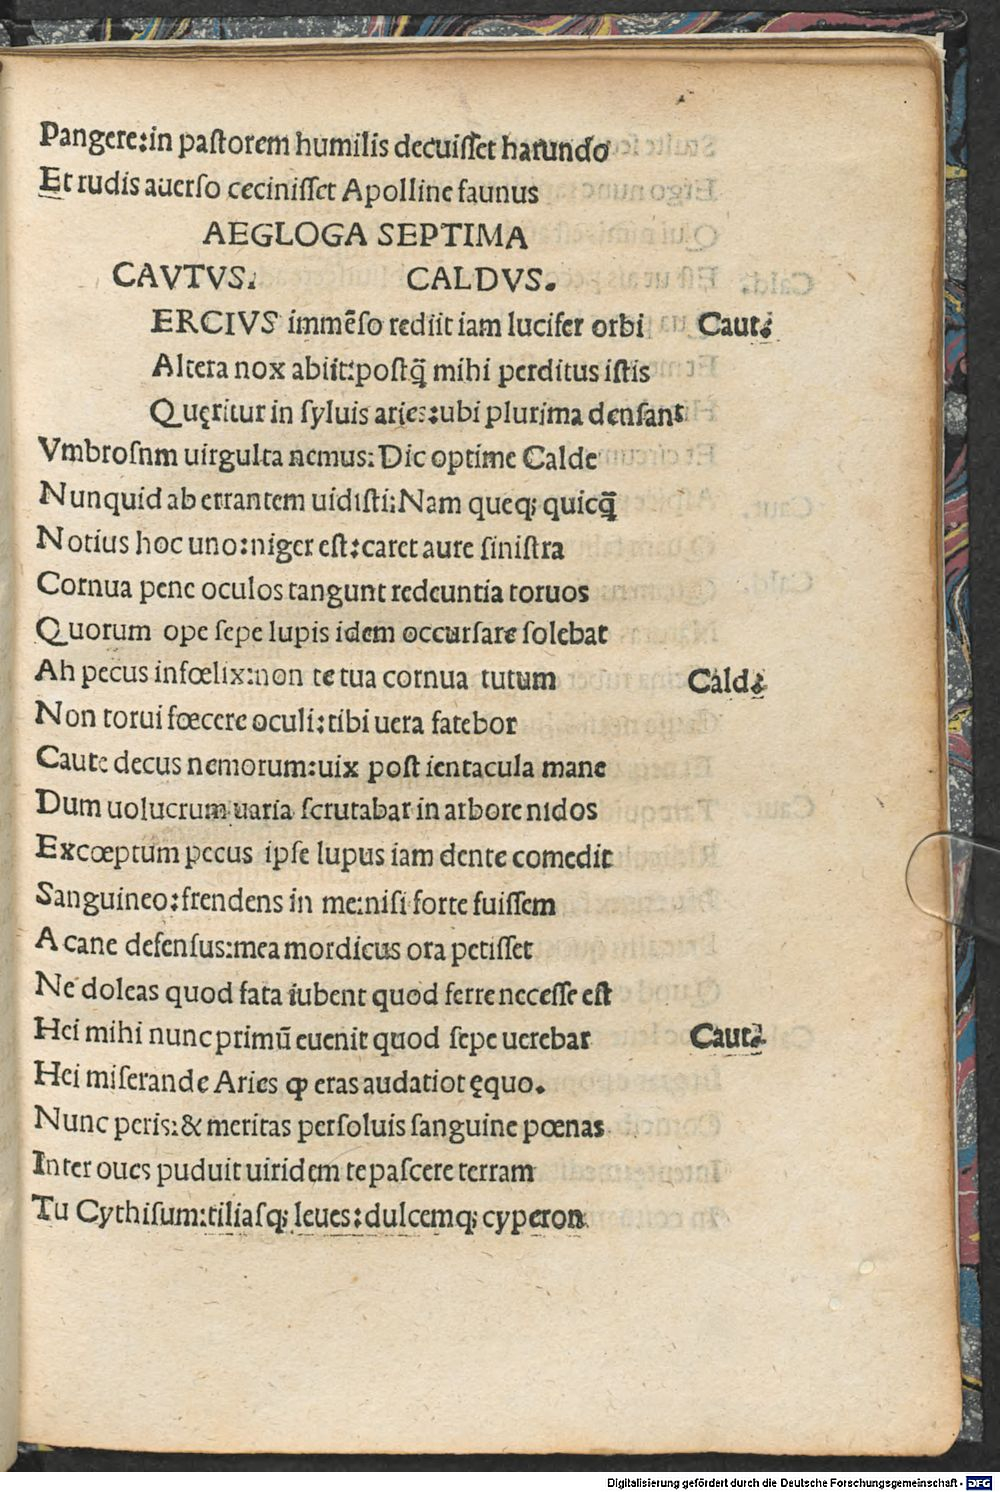 Pangere:in paſtorem humilis decuiſſet harundo
Et rudis auerſo ceciniſſet Apolline faunus
AEGLOGA SEPTIMA
CAVTVS. CALDVS.
ERCIVS immēſo rediit iam lucifer orbi Caut.
Altera nox abiit:poſtq̄ mihi perditus iſtis
Quęritur in ſyluis aries:ubi plurima denſant
Vmbroſnm uirgulta nemus:Dic optime Calde
Nunquid ab errantem uidiſti:Nam queq; quicq̄
Notius hoc uno:niger eſt:caret aure ſiniſtra
Cornua pene oculos tangunt redeuntia toruos
Quorum ope ſepe lupis idem occurſare ſolebat
Ah pecus infœlix:non te tua cornua tutum Cald.
Non torui fœcere oculi:tibi uera fatebor
Caute decus nemorum:uix poſt ientacula mane
Dum uolucrum uaria ſcrutabar in arbore nidos
Excœptum pecus ipſe lupus iam dente comedit
Sanguineo:frendens in me:niſi forte fuiſſem
A cane defenſus:mea mordicus ora petiſſet
Ne doleas quod fata iubent quod ferre neceſſe eſt
Hei mihi nunc primū euenit quod ſepe uerebar Caut.
Hei miſerande Aries ꝙ eras audatior ęquo.
Nunc peris:& meritas perſoluis ſanguine pœnas
Inter oues puduit uiridem te paſcere terram
Tu Cythiſum:tiliaſq; leues:dulcemq; cyperon
Digitalisierung gefördert durch die Deutsche Forschungsgemeinschaft - DFG